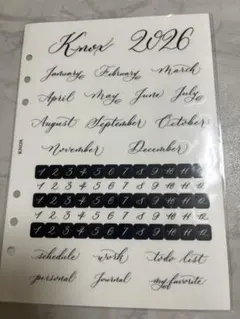 Knox 2026
January February March
April May June July
August September October
November December
1 2 3 4 5 6 7 8 9 10 11 12
1 2 3 4 5 6 7 8 9 10 11 12
1 2 3 4 5 6 7 8 9 10 11 12
1 2 3 4 5 6 7 8 9 10 11 12
1 2 3 4 5 6 7 8 9 10 11 12
schedule work to do list
personal Journal my favorite
KNOX